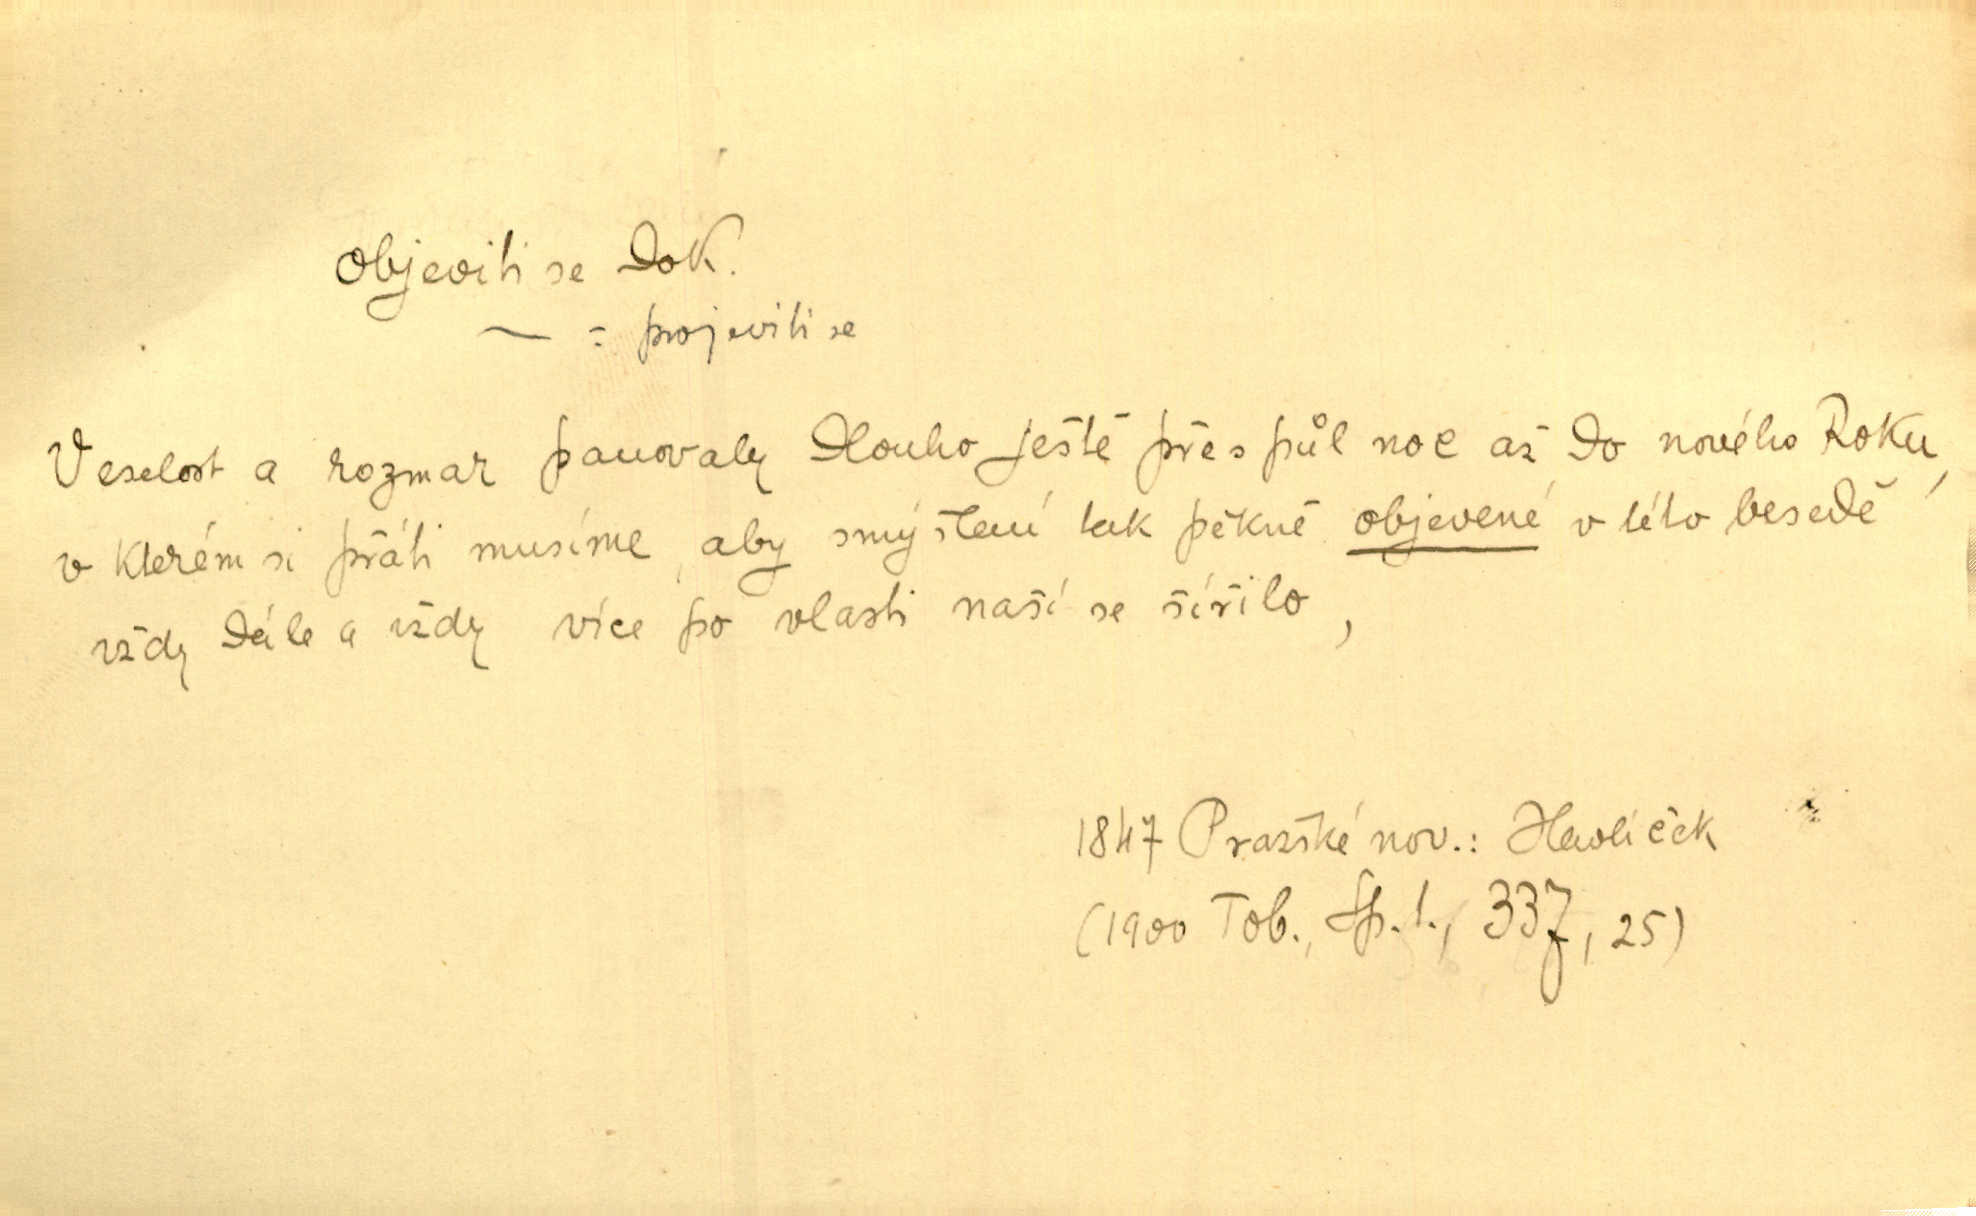 objeviti se dok.
— = projeviti se
Veselost a rozmar panovaly dlouho ještě přes půl noc až do nového Roku,
v kterém si přáti musíme, aby smýšlení tak pěkně objevené v této besedě
vždy dále a vždy více po vlasti naší se šířilo,
1847 Pražské nov.: Havlíček
(1900 Tob., Sp. I., 337, 25)